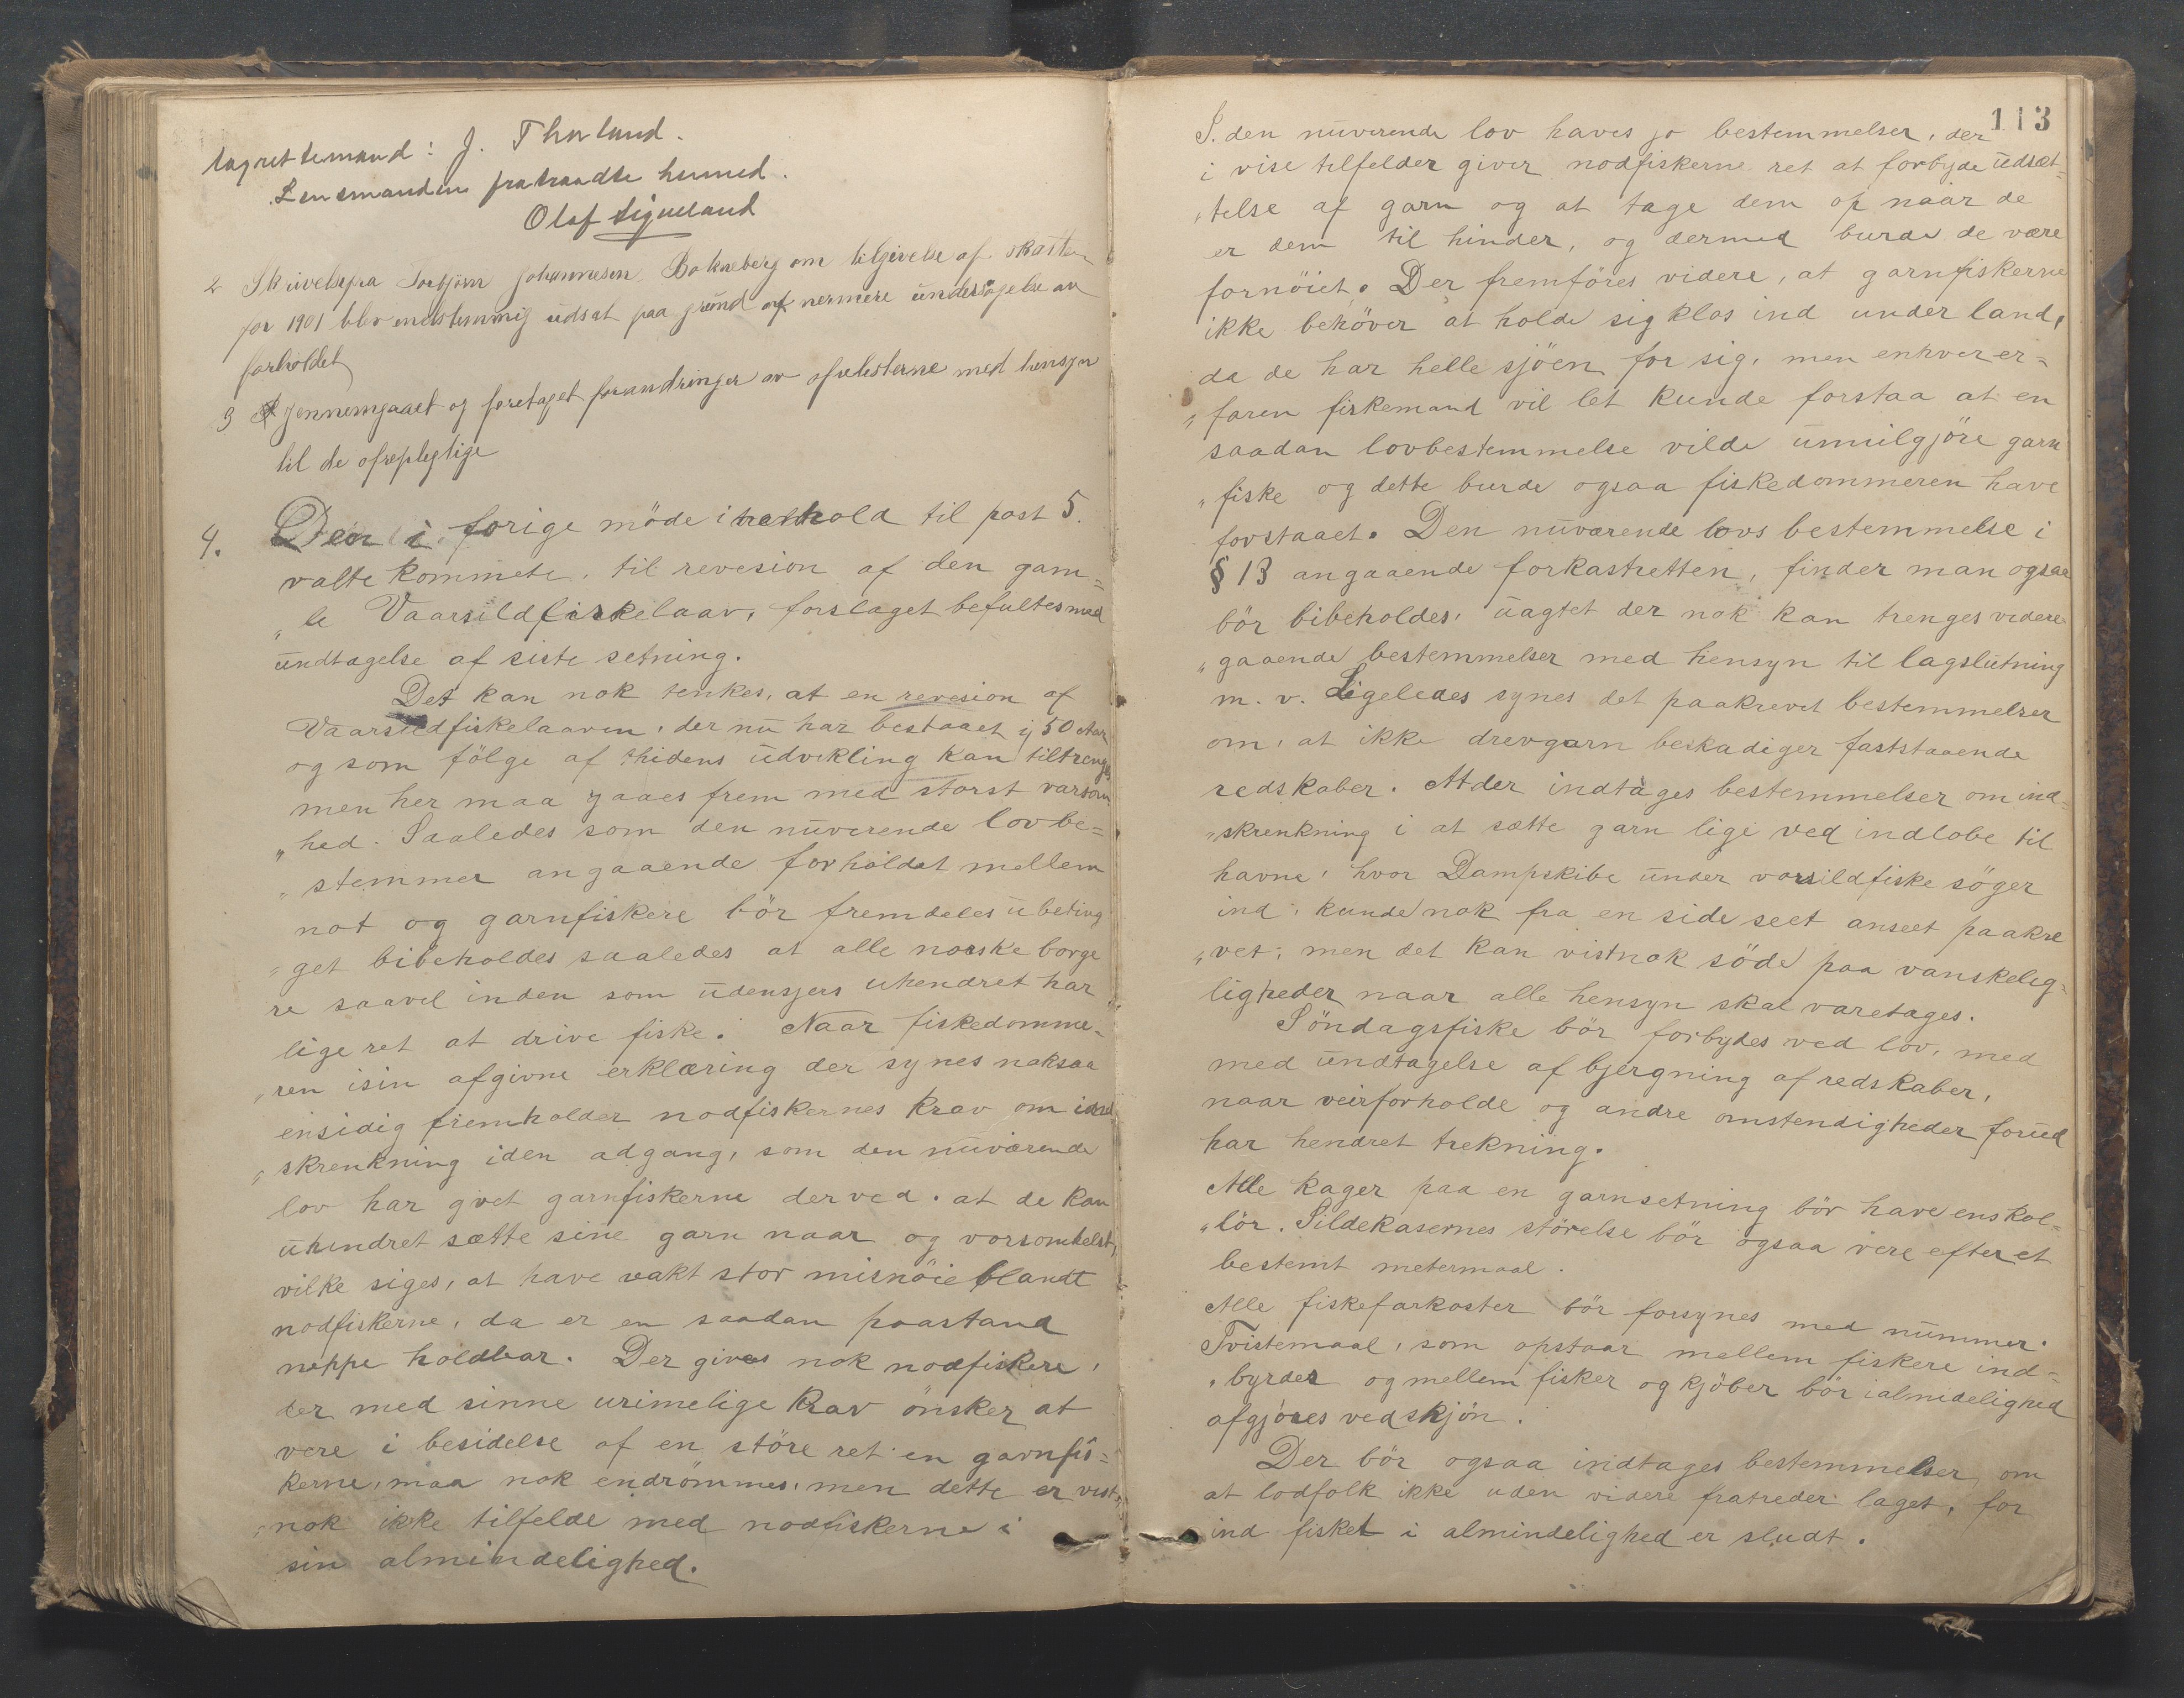 lagrettemand: J. Thorland.
Lensmanden fratraadte hermed.
Olaf Signeland
2 Skrivelse fra Torbjørn Johannesen Bokneberg om tilgivelse af skatten
for 1901 blev enstemmig udsat paa grund af nermere undersøgelse av
forholdet
3 Gjennemgaaet og foretaget forandringer av ofselisterne med hensyn
til de ofsepligtige
4. Den i forige møde i henhold til post 5.
valte kommete, til revesion af den gam=
„le Vaarsildfiskelaav, forslaget befultes med
undtagelse af siste setning.
Det kan nok tenkes, at en revesion af
Vaarsildfiskelaaven, der nu har bestaaet i 50 Aar
og som følge af thidens udvikling kan tiltrenges
men her maa gaaes frem med størst varsom
„hed. Saaledes som den nuverende lov be=
„stemmer angaaende forholdet mellem
not og garnfiskere bør fremdeles ubeting
„get bibeholdes saaledes at alle norske borge
re saavel inden som udensjers uhendret har
lige ret at drive fiske. Naar fiskedomme=
„ren i sin afgivne erklæring der synes nok saa
ensidig fremholder nodfiskernes krav om ind
„skrenkning i den adgang, som den nuværende
lov har givet garnfiskerne derved. at de kan
uhindret sætte sine garn naar og vorsomhelst,
vilke siges, at have vakt stor misnøie blandt
nodfiskerne, da er en saadan paastand
neppe holdbar. Der gives nok nodfiskere,
der med sinne urimelige krav ønsker at
vere i besidelse af en støre ret en garnfis=
kerne, maa nok endrømmes, men dette er vist,
„nok ikke tilfelde med nodfiskerne i
sin almindelighed.
113
I. den nuverende lov haves jo bestemmelser, der
i vise tilfelder giver nodfiskerne ret at forbyde udsæt=
„telse af garn og at tage dem op naar de
er dem til hinder, og dermed burde de være
fornøiet. Der fremføres videre, at garnfiskerne
ikke behøver at holde sig klos ind under land,
da de har helle sjøen for sig, men enhver er=
„faren fiskemand vil let kunde forstaa at en
saadan lovbestemmelse vilde umulgjøre garn
„fiske og dette burde ogsaa fiskedommeren have
forstaaet. Den nuværende lovs bestemmelse i
§ 13 angaaende forkastretten, finder man ogsaa
bør bibeholdes, uagtet der nok kan trenges videre
„gaaende bestemmelser med hensyn til lagslutning
m. v. Ligeledes synes det paakrevet bestemmelser
om, at ikke drevgarn beskadiger faststaaende
redskaber. At der indtages bestemmelser om ind=
„skrenkning i at sætte garn lige ved indløbe til
havne, hvor Dampskibe under vorsildfiske søger
ind, kunde nok fra en side seet anseet paakre
„vet; men det kan vistnok støde paa vanskelig=
ligheder naar alle hensyn skal varetages.
Søndagsfiske bør forbydes ved lov, med
med undtagelse af bjergning af redskaber,
naar veirforholde og andre omstendigheder forud
har hendret trekning.
Alle kager paa en garnsetning bør have ens kol=
„lør. Sildekasernes størelse bør ogsaa vere efter et
bestemt metermaal.
Alle fiskefarkoster bør forsynes med nummer.
Tvistemaal, som opstaar mellem fiskere ind=
„byrdes og mellem fisker og kjøber bør i almidelighed
afgjøres ved skjøn.
Der bør ogsaa indtages bestemmelser om
at lodfolk ikke uden videre fratreder laget, for
ind fisket i almindelighed er sludt.